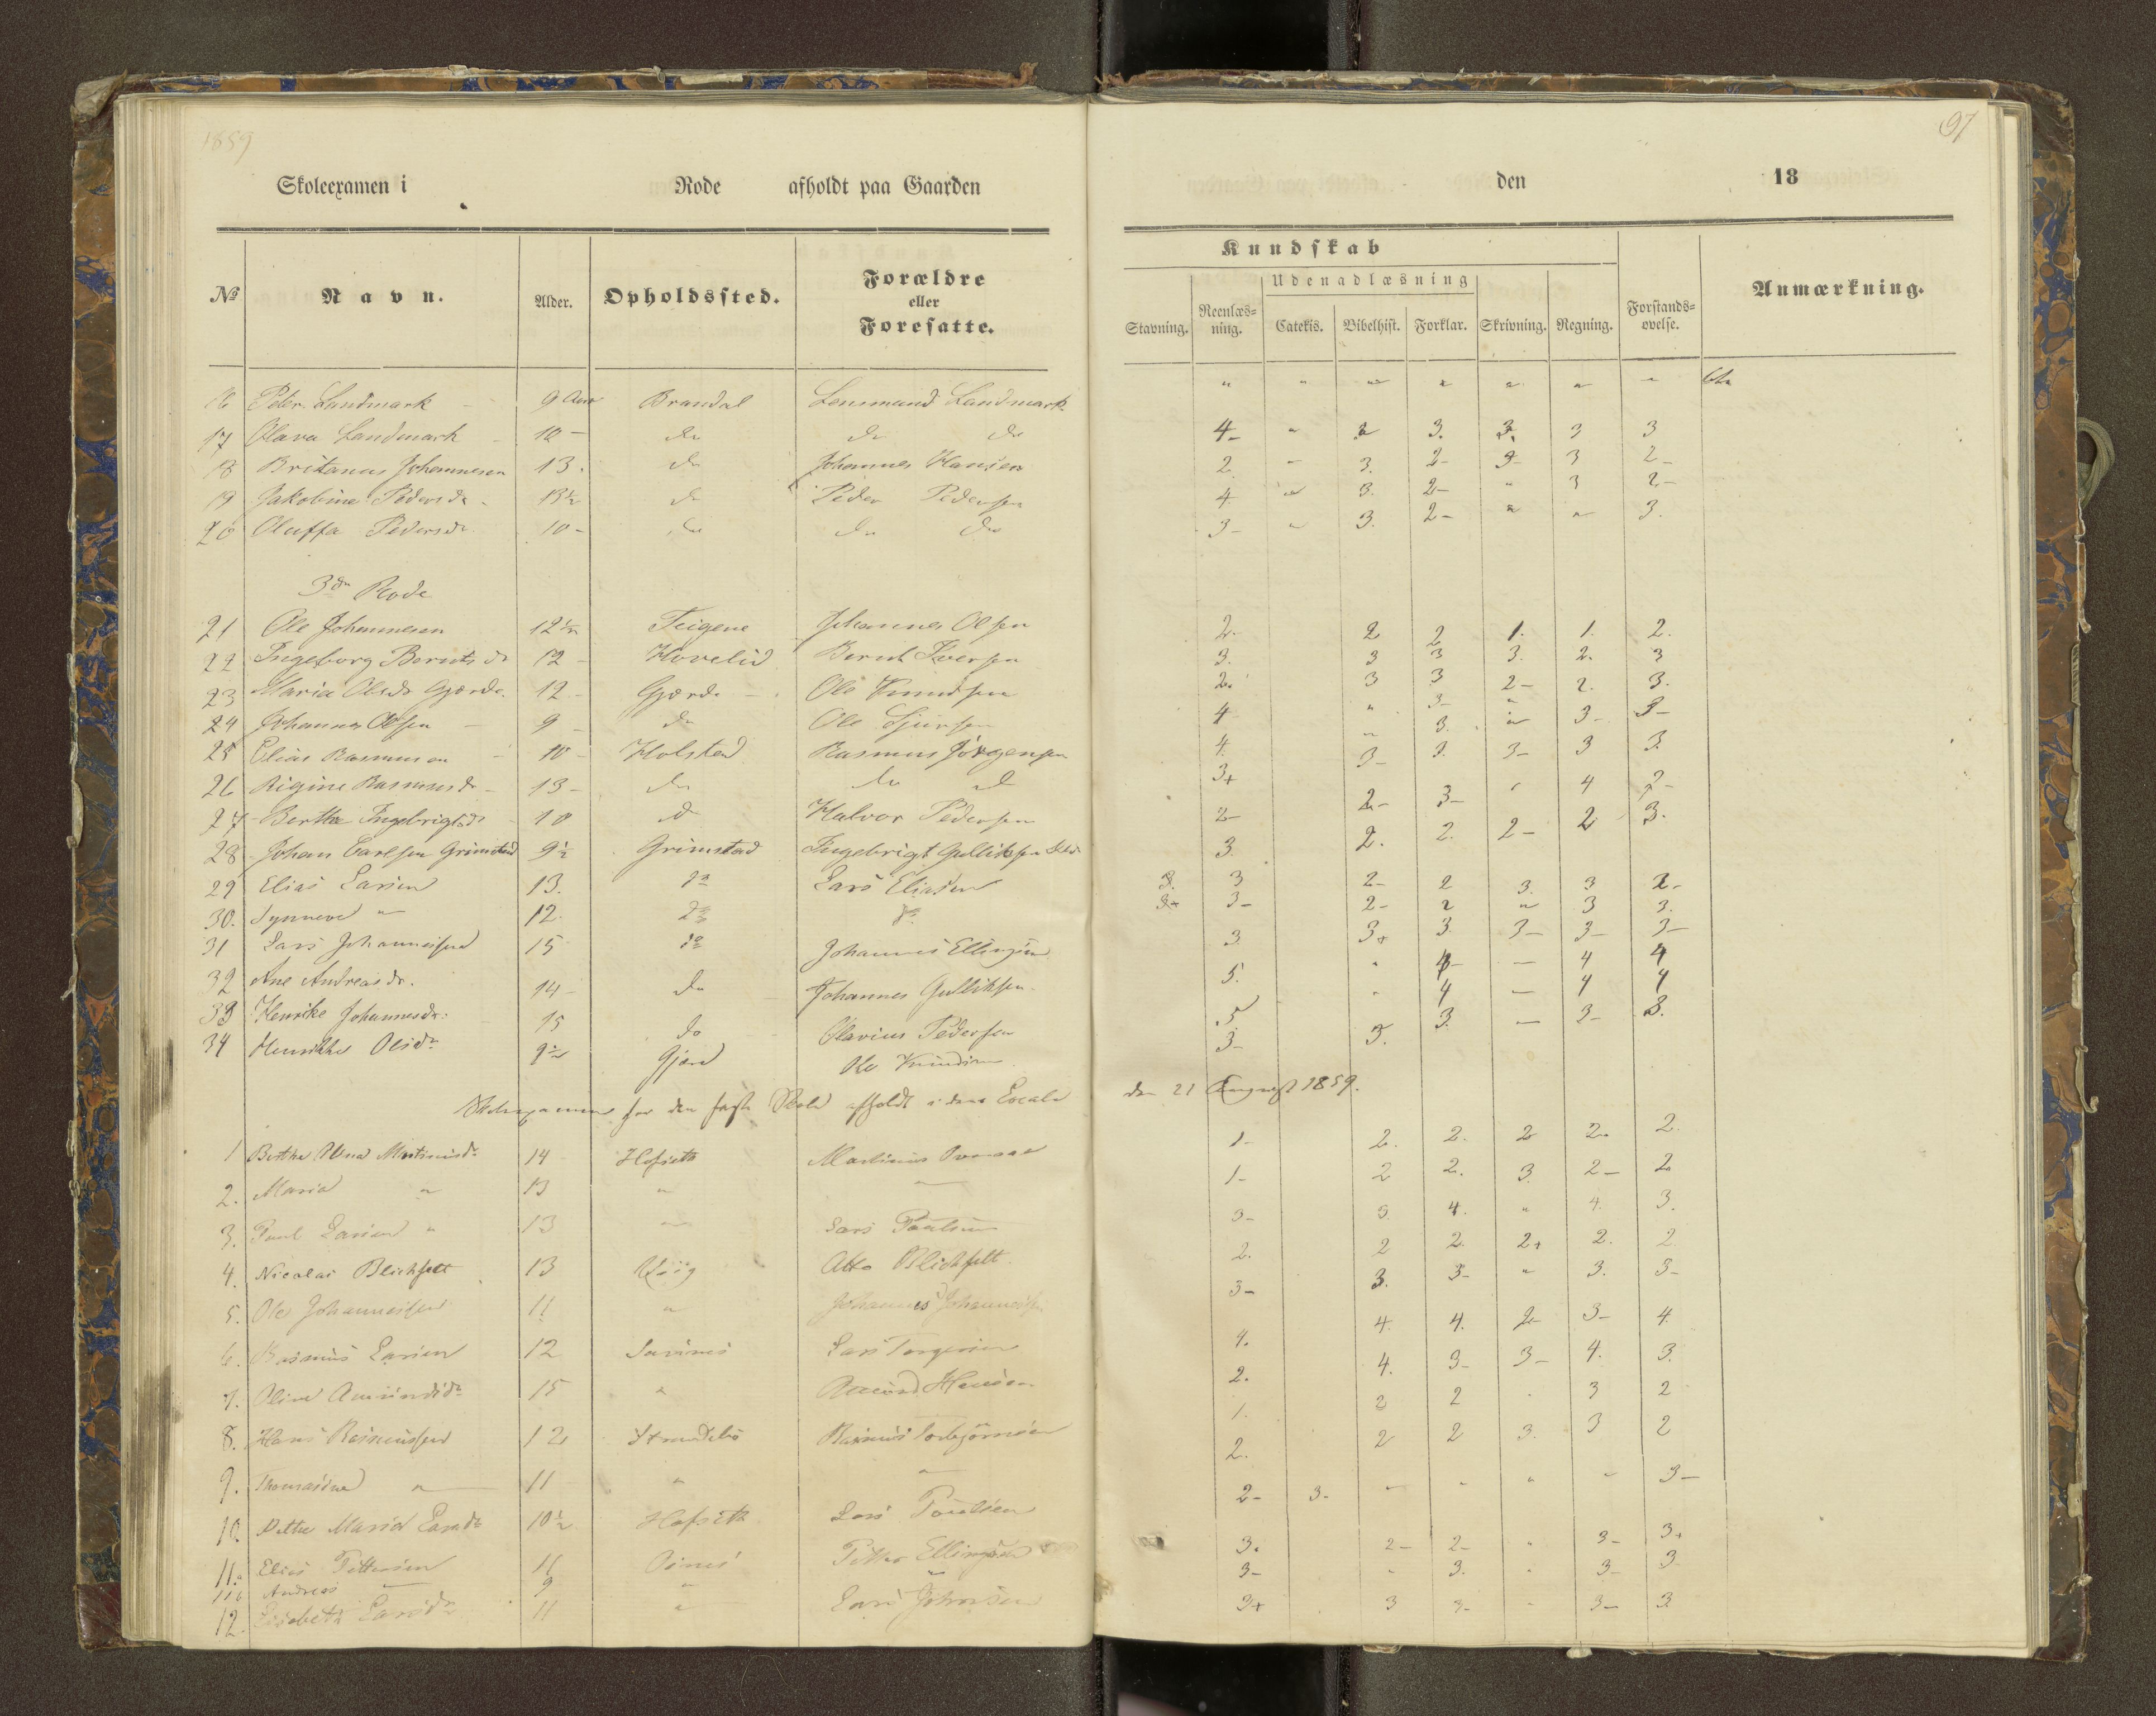 1859
97
Skoleexamen i Rode afholdt paa Gaarden den 18
Kundskab
Udenadlæsning
№ Navn. Alder. Opholdssted. Forældre eller Foresatte. Stavning. Reenlæs=ning. Catekis. Bibelhist. Forklar. Skrivning. Regning. Forstands=øvelse. Anmærkning.
16 Peter Landmark 9 Brandal Lensmand Landmark " " " " " " "
17 Olava Landmark 10 - do do do 4- " 2 3. 3. 3 3
18 Britanus Johannesen 13. do Johannes Hansen 2 - 3. 2- 3- 3 2-
19 Jakobine Pedersdr 13½ do Peder Pedersen 4 " 3. 2- " 3 2-
20 Oluffa Pedersdr 10 - do do do 3- " 3. 2- " " 3.
3die Rode
21 Ole Johannesen 12½ Teigene Johannes Olsen 2. 2 2 1. 1. 2.
22 Ingeborg Berntsdr 12 - Hovelid Bernt Iversen 3. 3 3 3. 2. 3
23 Maria Olsdr Gjerde 12 - Gjerde Ole Knudsen 2. 3 3 2- 2. 3.
24 Johannes Olsen 9 - do Ole Sjursen 4 " 3- " 3- 3-
25 Elias Rasmusen 10 - Holstad Rasmus Jørgensen 4. " 3. "
26 Rigine Rasmusdr 13 - do do d 3+ 3- 3. 3- 3 3.
27 Berthe Ingebrigtsdr 10 d Halvor Pedersen 2- 2- 3- " 4 2-
28 Johan Carlsen Grimstad 9½ Grimstad Ingebrigt Gulliksen 3. 2. 2. 2- 2 3.
29 Elias Larsen 13. do Lars Eliasen 3. 3 2- 2 3. 3 2-
30. Synneve " 12. do do 3+ 3- 2- 2 " 3 3.
31 Lars Johannessen 15 do Johannes Ellingsen 3 3+ 3 3- 3- 3-
32 Ane Andreasdr. 14 - do Johannes Gulliksen 5. " 4- - 4 4
33 Henrike Johannesdr: 15 do Olavius Pedersen 5 " 4 - 4 4
34 Henrikke Olsdr 9½ Gjerd Ole Knudsen 3- 3. 3. - 3- 3.
Skoleexamen for den faste Skole afholdt i dens Locale den 21 August 1859.
1 Berthe Martinusdr 14 Hofseth Martinus 1- 2. 2. 2 2. 2.
2. Maria " 13 " " 1- 2 2. 3. 2- 2
3. Paul Larsen " 13 " Lars Paulsen 3- 3 4. " 4. 3.
4. Nicolai Blichfelt 13 Atto Blichfelt 2. 2 2. 2+ 2. 2
5. Ole Johannessen 11 " Johannes Johannessen 3- 3. 3- " 3. 3-
6. Rasmus Larsen 12 Lars Torgersen 4. 4. 4. 2- 3- 4.
7. Oline Amundsdr 15 " Amund Hansen 2. 4. 3- 3- 4. 3.
8. Hans Rasmussen 12 Rasmus Torbjørnsen 1. 2 2 . 3 2
9. Thomasine " 11 " " 2. 2 2 3. 3 2
10. Pethe Maria Larsdr 10½ Hofseth Lars Paulsen 2- 3- " " " " 3-
11. Elias Pettersen 11 Petter Ellingsen 3. 2- 2- " 3- 3+
11b Andreas " 9 " " 3- " 3. " 3- 3
12. Elisabeth Larsdr 11 " Lars Johnsen 3+ 3 3- - 3- 3